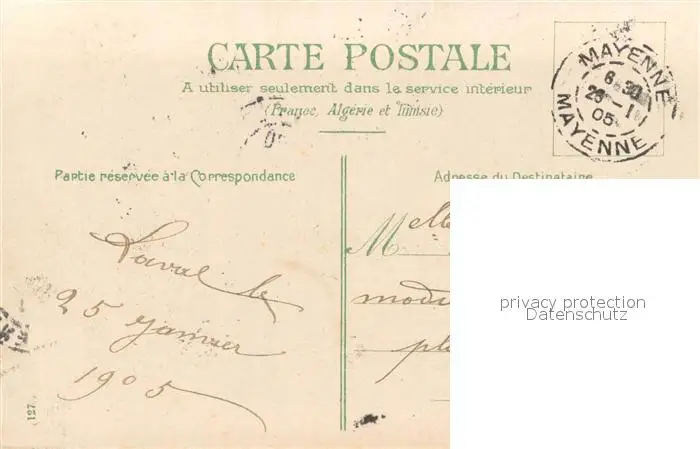 CARTE POSTALE
A utiliser seulement dans le service intérieur
(France, Algérie et Tunisie)
MAYENNE
6 30
26 - 1
05
MAYENNE
Partie réservée à la Correspondance
Adresse du Destinataire
Laval le
25 janvier
1905
Melle
modi
pl
privacy protection
Datenschutz
127